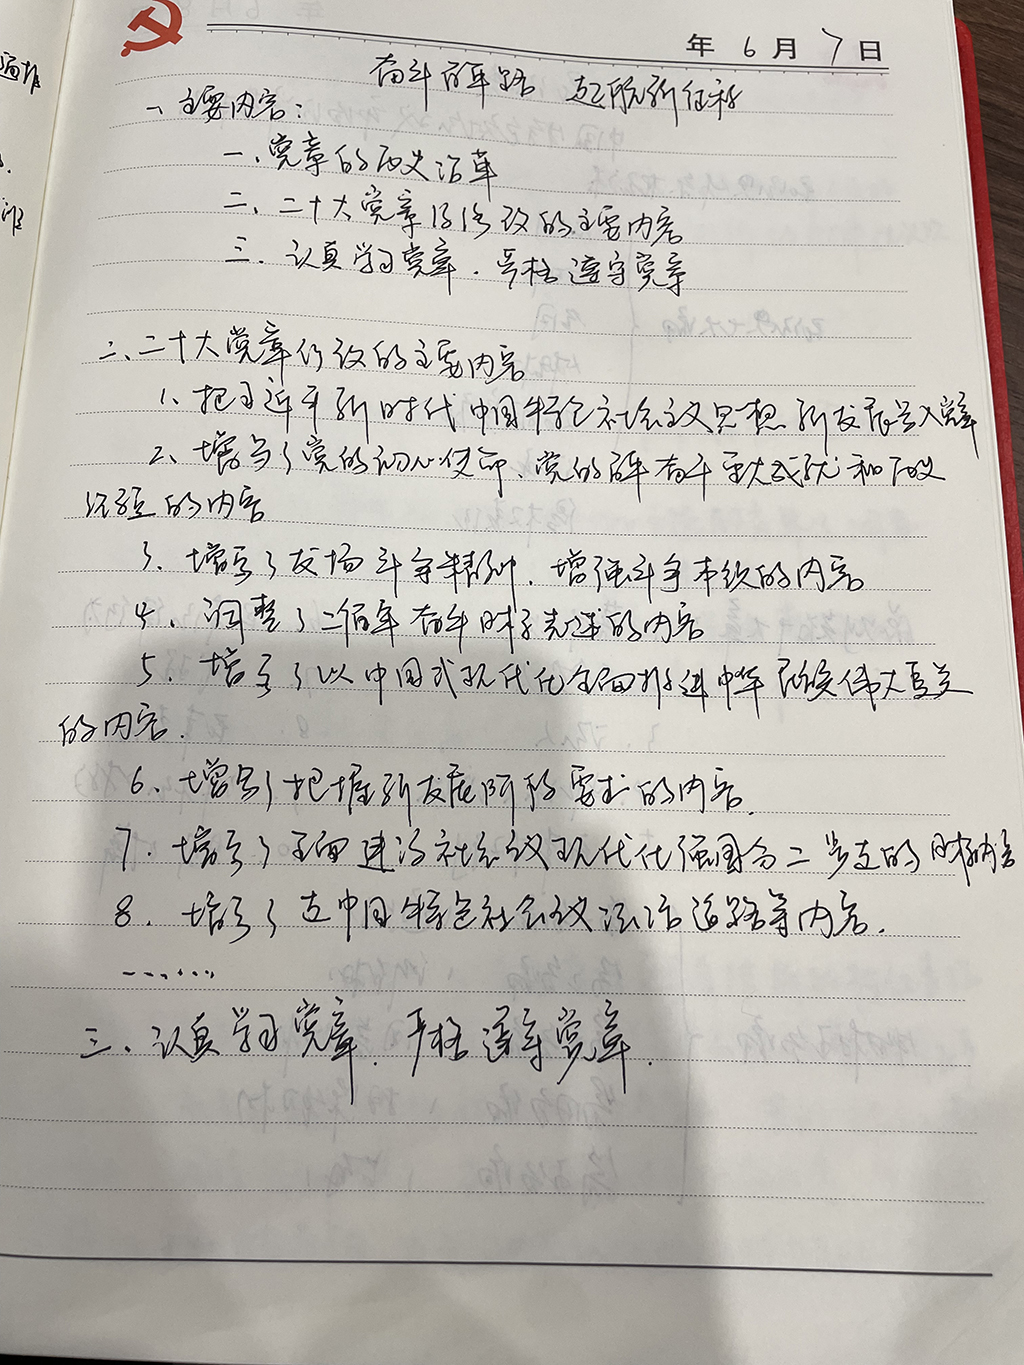 年 6 月 7 日
奋斗百年路 起航新征程
一、主要内容：
一、党章的历史沿革
二、二十大党章修改的主要内容
三、认真学习党章、严格遵守党章
二、二十大党章修改的主要内容
1、把习近平新时代中国特色社会主义思想新发展写入党章
2、增写了党的初心使命、党的百年奋斗重大成就和历史
经验的内容
3、增写了发扬斗争精神、增强斗争本领的内容
4、调整了二个百年奋斗目标表述的内容
5、增写了以中国式现代化全面推进中华民族伟大复兴
的内容.
6、增写了把握新发展阶段要求的内容.
7、增写了全面建设社会主义现代化强国分二步走的目标内容
8、增写了走中国特色社会主义法治道路等内容.
........
三、认真学习党章、严格遵守党章.